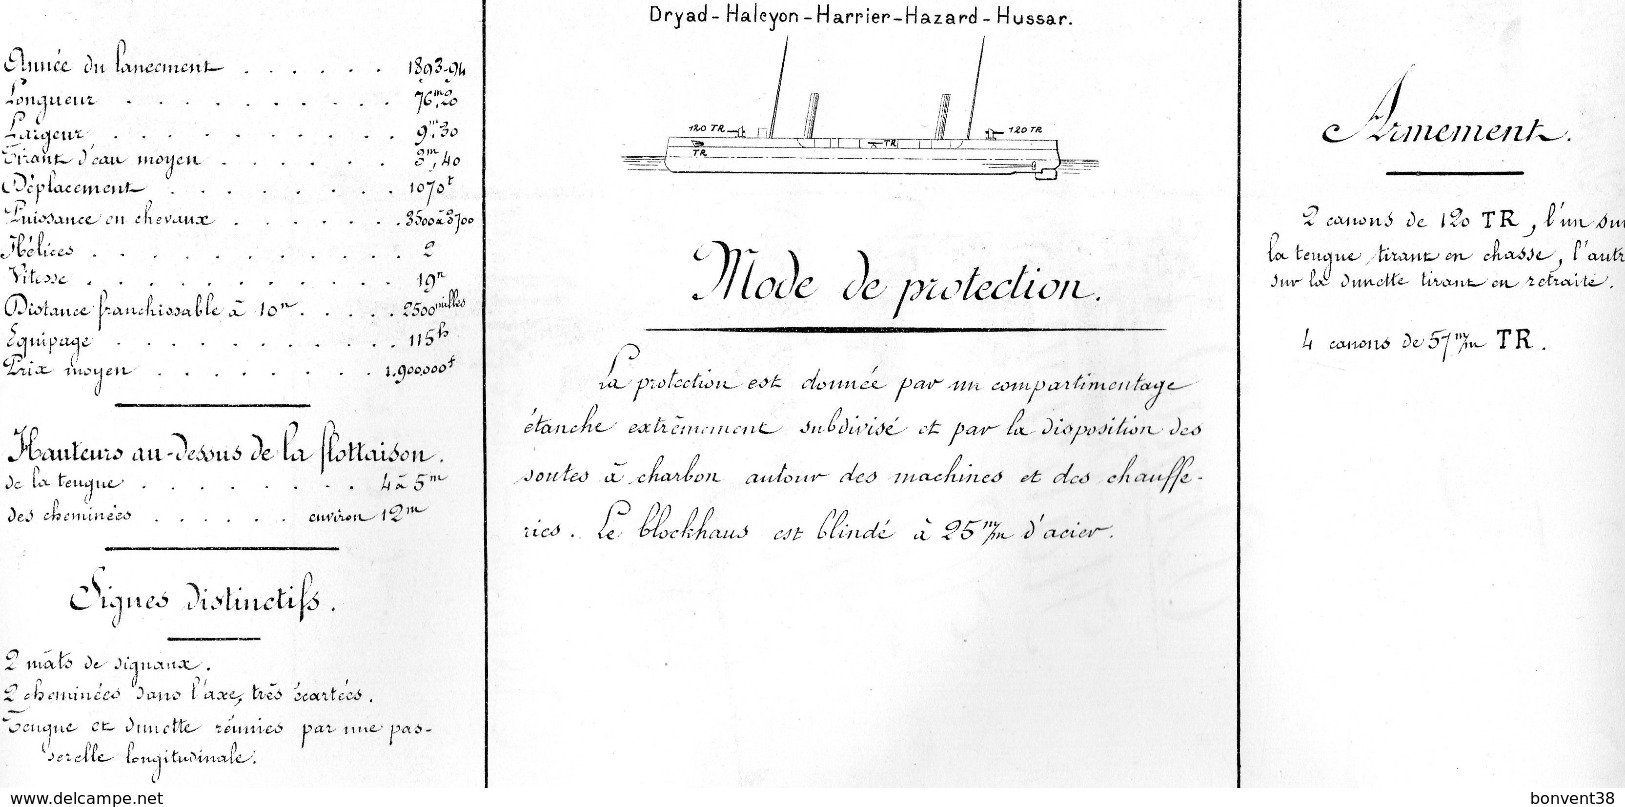 Dryad - Halcyon - Harrier - Hazard - Hussar.
Année du lancement . . . . . . 1893-94
Longueur . . . . . . . . . . 76m,20
Largeur . . . . . . . . . . 9m,30
Tirant d'eau moyen . . . . . . 3m,40
Déplacement . . . . . . . . 1070t
Puissance en chevaux . . . . . . 3500 à 3700
Hélices . . . . . . . . . . . 2
Vitesse . . . . . . . . . . . 19n
Distance franchissable à 10n . . . . . 2500 milles
Equipage . . . . . . . . . . 115h
Prix moyen . . . . . . . . 1.900.000f
Hauteurs au-dessus de la flottaison.
de la teugue . . . . . . . . 4 à 5m
des cheminées . . . . . . environ 12m
Signes distinctifs.
2 mâts de signaux.
2 cheminées dans l'axe, très écartées.
Teugue et dunette réunies par une pas-
serelle longitudinale.
120 TR
120 TR
TR
TR
Mode de protection.
La protection est donnée par un compartimentage
étanche extrêmement subdivisé et par la disposition des
soutes à charbon autour des machines et des chauffe-
ries. Le blockhaus est blindé à 25 m/m d'acier.
Armement.
2 canons de 120 TR, l'un sur
la teugue tirant en chasse, l'autr
sur la dunette tirant en retraite.
4 canons de 57 m/m TR.
www.delcampe.net
bonvent38